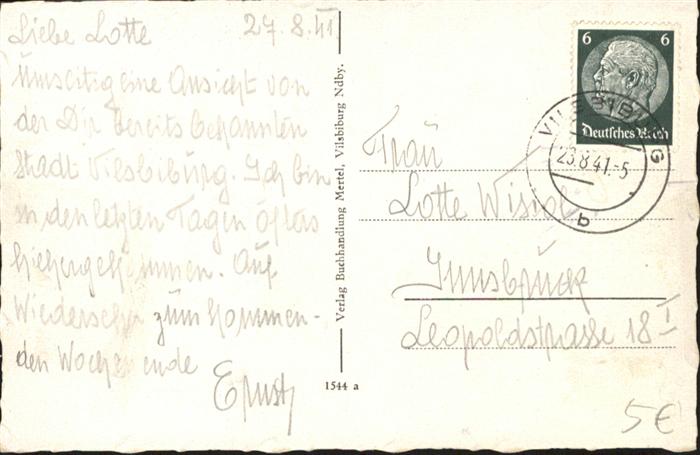 Liebe Lotte 27.8.41
Umseitig eine Ansicht von
der Dir bereits bekannten
Stadt Vilsbiburg. Ich bin
in den letzten Tagen öfters
hiehergekommen. Auf
Wiedersehn zum kommen-
den Wochenende
Ernst
Verlag Buchhandlung Mertel, Vilsbiburg Ndby.
1544 a
6 6
Deutsches Reich
VILSBIBURG
23.8.41.-5
b
Frau
Lotte
Innsbruck
Leopoldstrasse 18 I
5€